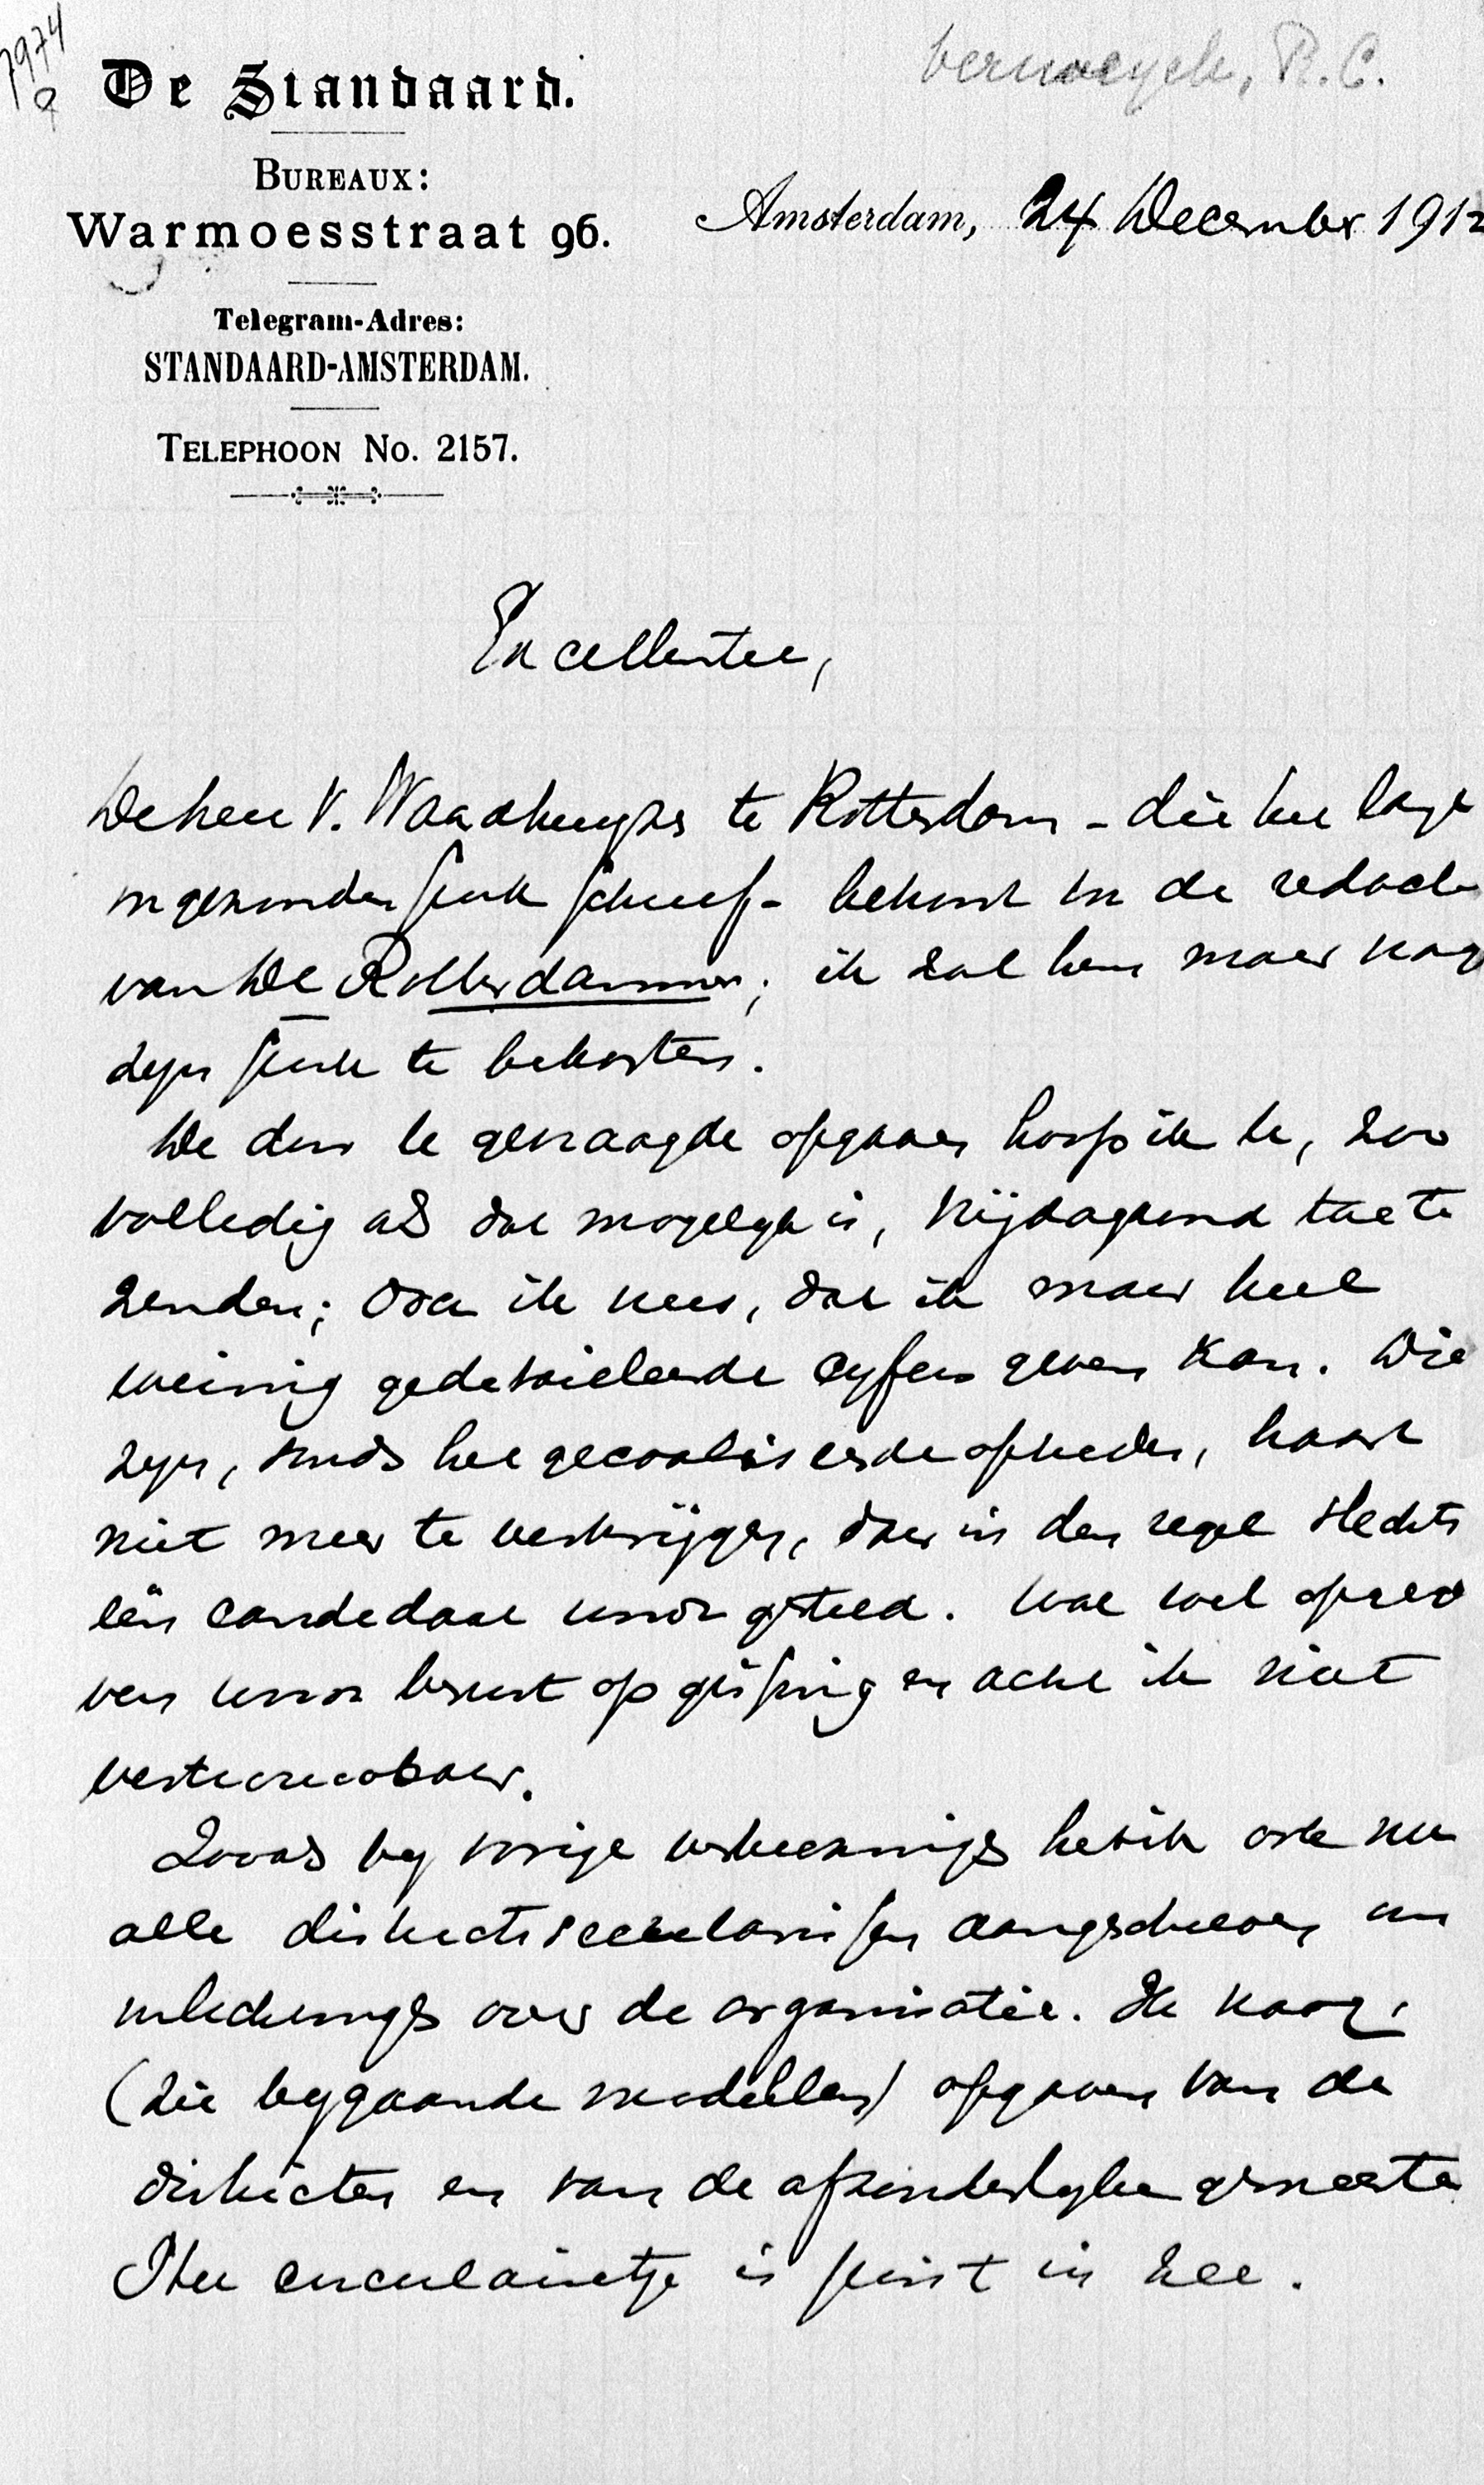 7974
De Standaard.
Verweyck, R.C.
BUREAUX:
Warmoesstraat 96.
Amsterdam, 24 December 1912
Telegram-Adres:
STANDAARD-AMSTERDAM.
TELEPHOON No. 2157.
Excellentie,
De heer V. te Rotterdam - die het lange
ingezonden stuk schreef - behoort tot de redactie
van De Rotterdammer; ik zal hem maar vragen
zijn stuk te bekorten.
De door U gevraagde opgaven hoop ik U, zoo
volledig als dat mogelijk is, Vrijdagavond toe te
zenden; doch ik vrees, dat ik maar heel
weinig gedetailleerde cyfers geven kan. Die
zyn, sinds het gecoaliseerde optreden, haast
niet meer te verkrijgen, daar in den regel slechts
één candidaat wordt gesteld. Wat wel opgege
ven wordt berust op gissing en acht ik niet
vertrouwbaar.
Zooals by vorige verkiezingen heb ik ook nu
alle districtssecretarissen aangeschreven om
inlichtingen over de organisatie. Ik vraag,
(zie bygaande modellen) opgaven van de
districten en van de afzonderlyke gemeenten
Het circulairetje is juist in zee.